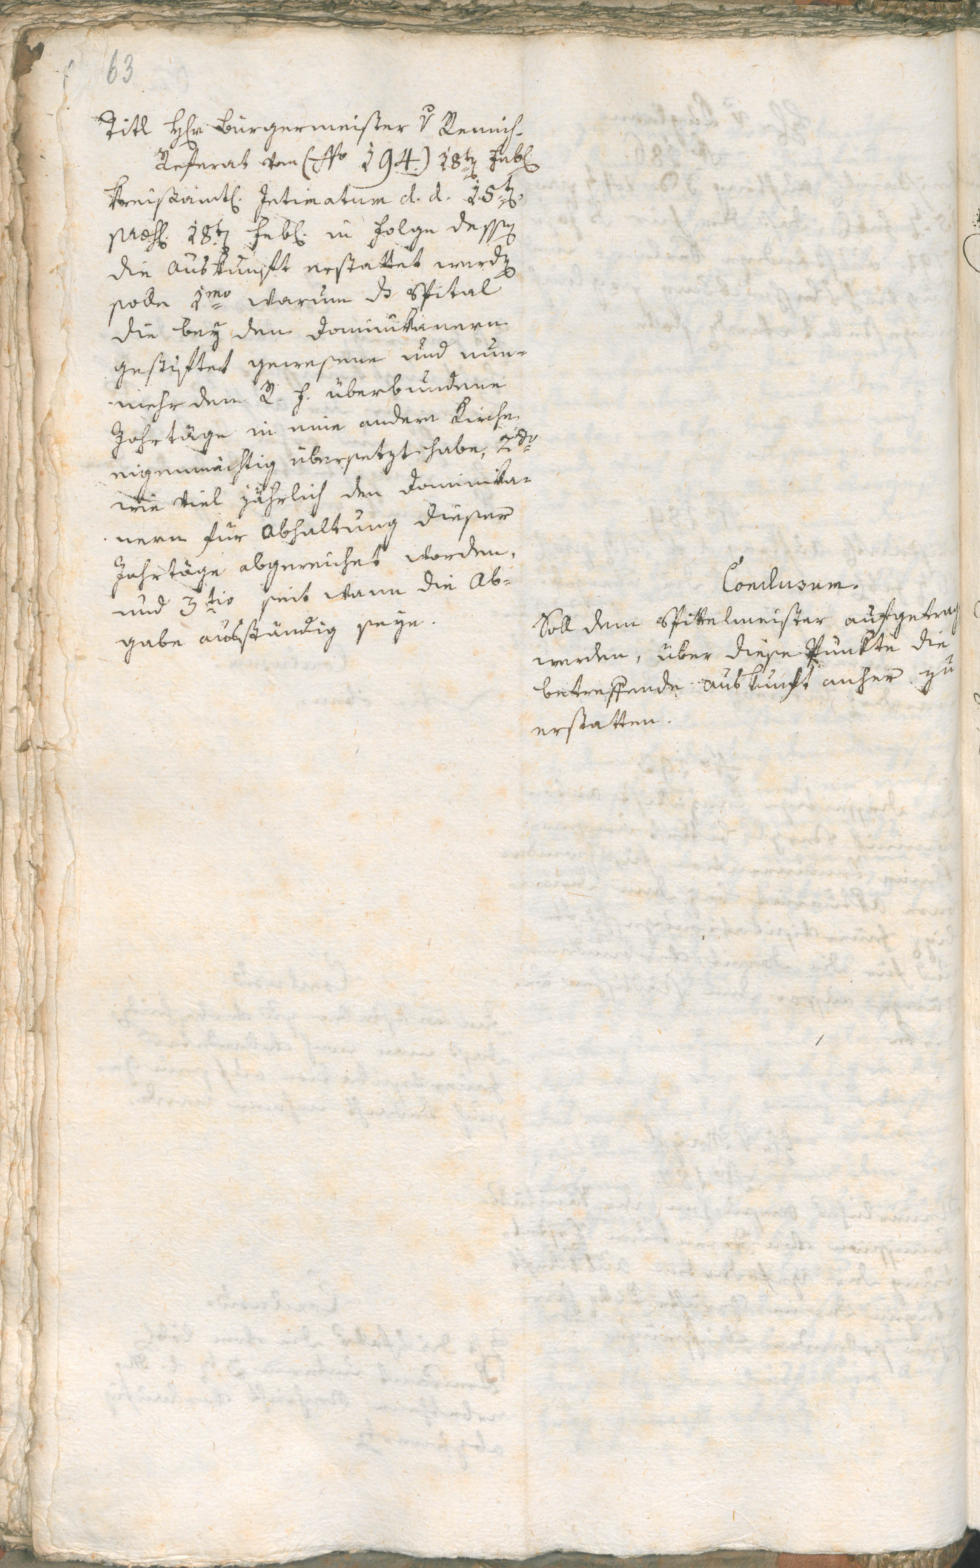 63
Titl Hhr Bürgermeister v Remich.
Referat von (No 194.) 28ten Febl
Kreisamtl. Intimatum d. d. 25ten
28ten Febl in Folge dessen
die Auskunft erstattet werden
solle 1mo warum ds Spital
die bey den Dominikanern
gestiftet gewesene und nun-
mehr dem R. f. überbundene
Jahrtäge in eine andere Kirche
eigenmächtig übersetzt habe, 2do
wie viel jährlich den Dominika-
nern für Abhaltung dieser
Jahrtäge abgereichet worden,
und 3tio seit wann die Ab-
gabe ausständig seye.
Conclusum.
Soll dem Spittelmeister aufgetrag
werden, über diese Punkte die
betreffende Auskunft anher zu
erstatten.